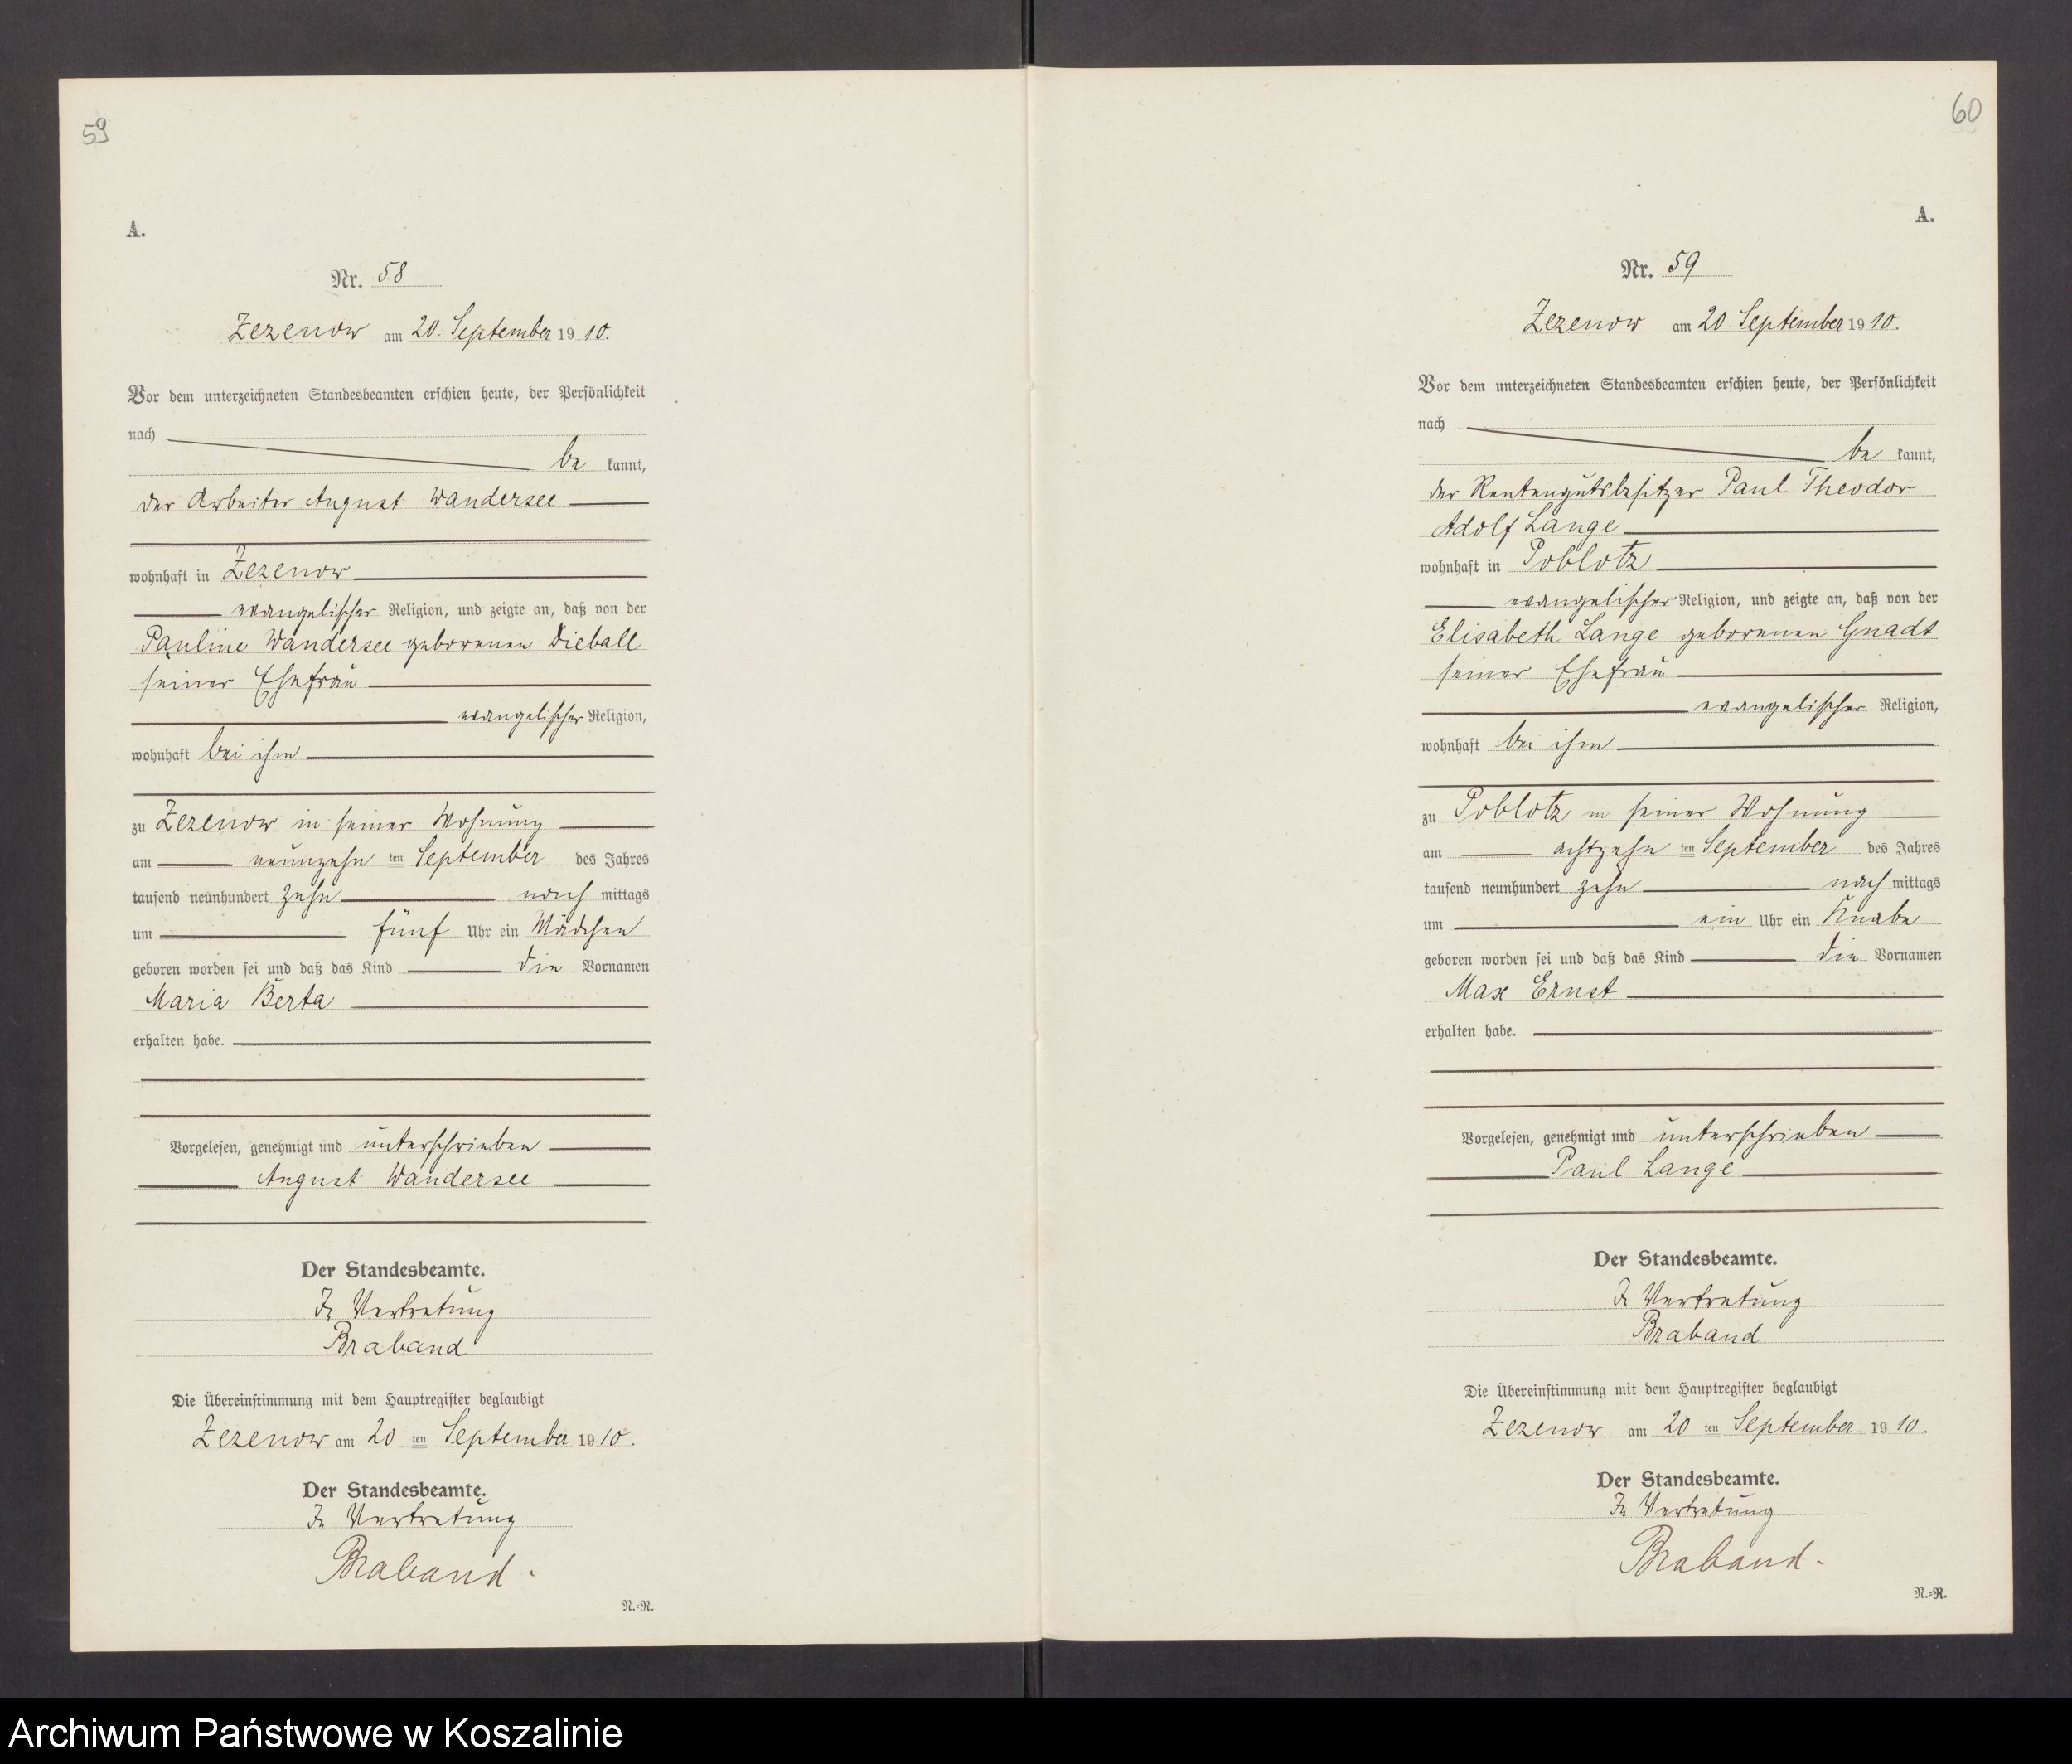 59
A.
Nr. 58
Zezenow am 20. September 1910.
Vor dem unterzeichneten Standesbeamten erschien heute, der Persönlichkeit
nach
be kannt,
der Arbeiter August Wandersee
wohnhaft in Zezenow
evangelischer Religion, und zeigte an, daß von der
Pauline Wandersee geborenen Dieball
seiner Ehefrau
evangelischer Religion,
wohnhaft bei ihm
zu Zezenow in seiner Wohnung
am neunzehn ten September des Jahres
tausend neunhundert zehn nach mittags
um fünf Uhr ein Mädchen
geboren worden sei und daß das Kind die Vornamen
Maria Berta
erhalten habe.
Vorgelesen, genehmigt und unterschrieben
August Wandersee
Der Standesbeamte.
In Vertretung
Braband
Die Übereinstimmung mit dem Hauptregister beglaubigt
Zezenow am 20 ten September 1910.
Der Standesbeamte.
In Vertretung
Braband.
N.=R.
60
A.
Nr. 59
Zezenow am 20 September 1910.
Vor dem unterzeichneten Standesbeamten erschien heute, der Persönlichkeit
nach
be kannt,
der Rentengutsbesitzer Paul Theodor
Adolf Lange
wohnhaft in Poblotz
evangelischer Religion, und zeigte an, daß von der
Elisabeth Lange geborenen Gnadt
seiner Ehefrau
evangelischer Religion,
wohnhaft bei ihm
zu Poblotz in seiner Wohnung
am achtzehn ten September des Jahres
tausend neunhundert zehn nach mittags
um ein Uhr ein Knabe
geboren worden sei und daß das Kind die Vornamen
Max Ernst
erhalten habe.
Vorgelesen, genehmigt und unterschrieben
Paul Lange
Der Standesbeamte.
In Vertretung
Braband
Die Übereinstimmung mit dem Hauptregister beglaubigt
Zezenow am 20 ten September 1910.
Der Standesbeamte.
In Vertretung
Braband.
N.=R.
Archiwum Państwowe w Koszalinie